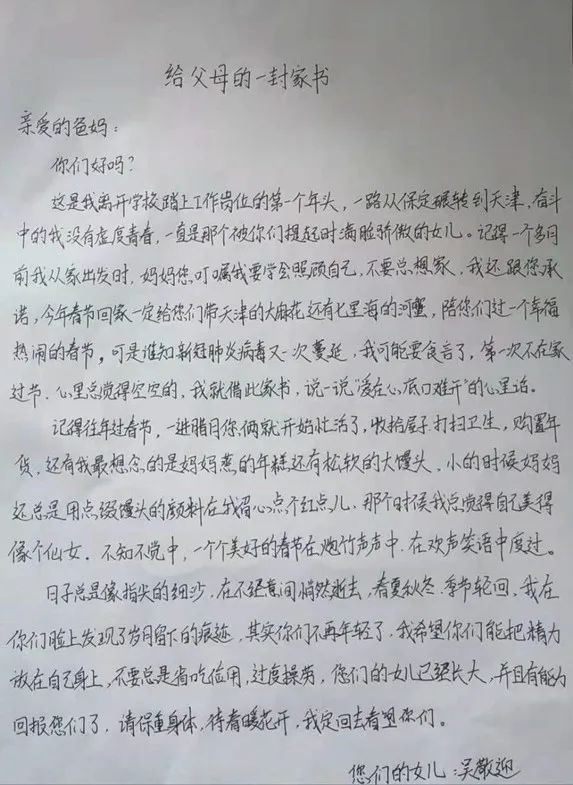 给父母的一封家书
亲爱的爸妈：
你们好吗？
这是我离开学校踏上工作岗位的第一个年头，一路从保定辗转到天津，奋斗
中的我没有虚度青春，一直是那个被你们提起时满脸骄傲的女儿。记得一个多月
前我从家出发时，妈妈您叮嘱我要学会照顾自己，不要总想家，我还跟您承
诺，今年春节回家一定给您们带天津的大麻花还有七里海的河蟹，陪你们过一个幸福
热闹的春节，可是谁知新冠肺炎病毒又一次蔓延，我可能要食言了，第一次不在家
过节，心里总觉得空空的，我就借此家书，说一说“爱在心底口难开”的心里话。
记得往年过春节，一进腊月你俩就开始忙活了，收拾屋子打扫卫生，购置年
货，还有我最想念的是妈妈蒸的年糕还有松软的大馒头，小的时候妈妈
还总是用点缀馒头的颜料在我眉心点个红点儿，那个时候我总觉得自己美得
像个仙女。不知不觉中，一个个美好的春节在炮竹声声中，在欢声笑语中度过。
日子总是像指尖的细沙，在不经意间悄然逝去，春夏秋冬，季节轮回，我在
你们脸上发现了岁月留下的痕迹，其实你们不再年轻了，我希望你们能把精力
放在自己身上，不要总是省吃俭用，过度操劳，您们的女儿已经长大，并且有能力
回报您们了，请保重身体，待春暖花开，我定回去看望你们。
您们的女儿：吴敬迎